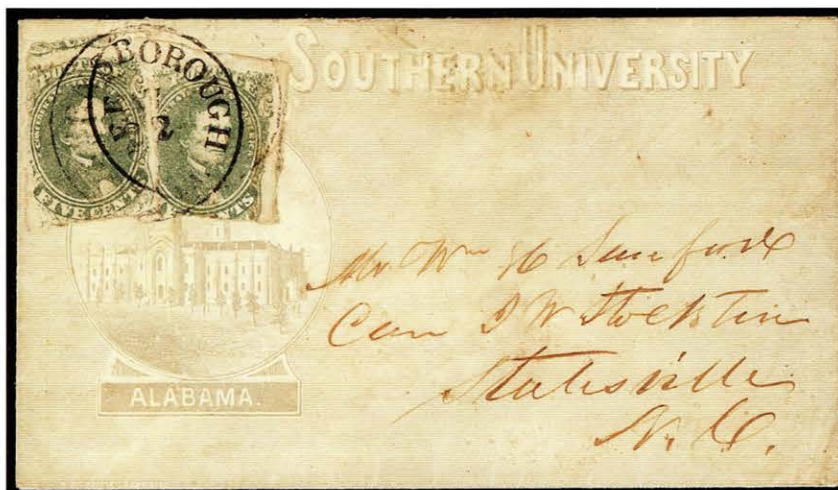 SOUTHERN UNIVERSITY
SBOROUGH
2
FIVE CENTS
ALABAMA.
Mr Wm H Sanford
Care J W Stockton
Statesville
N. C.